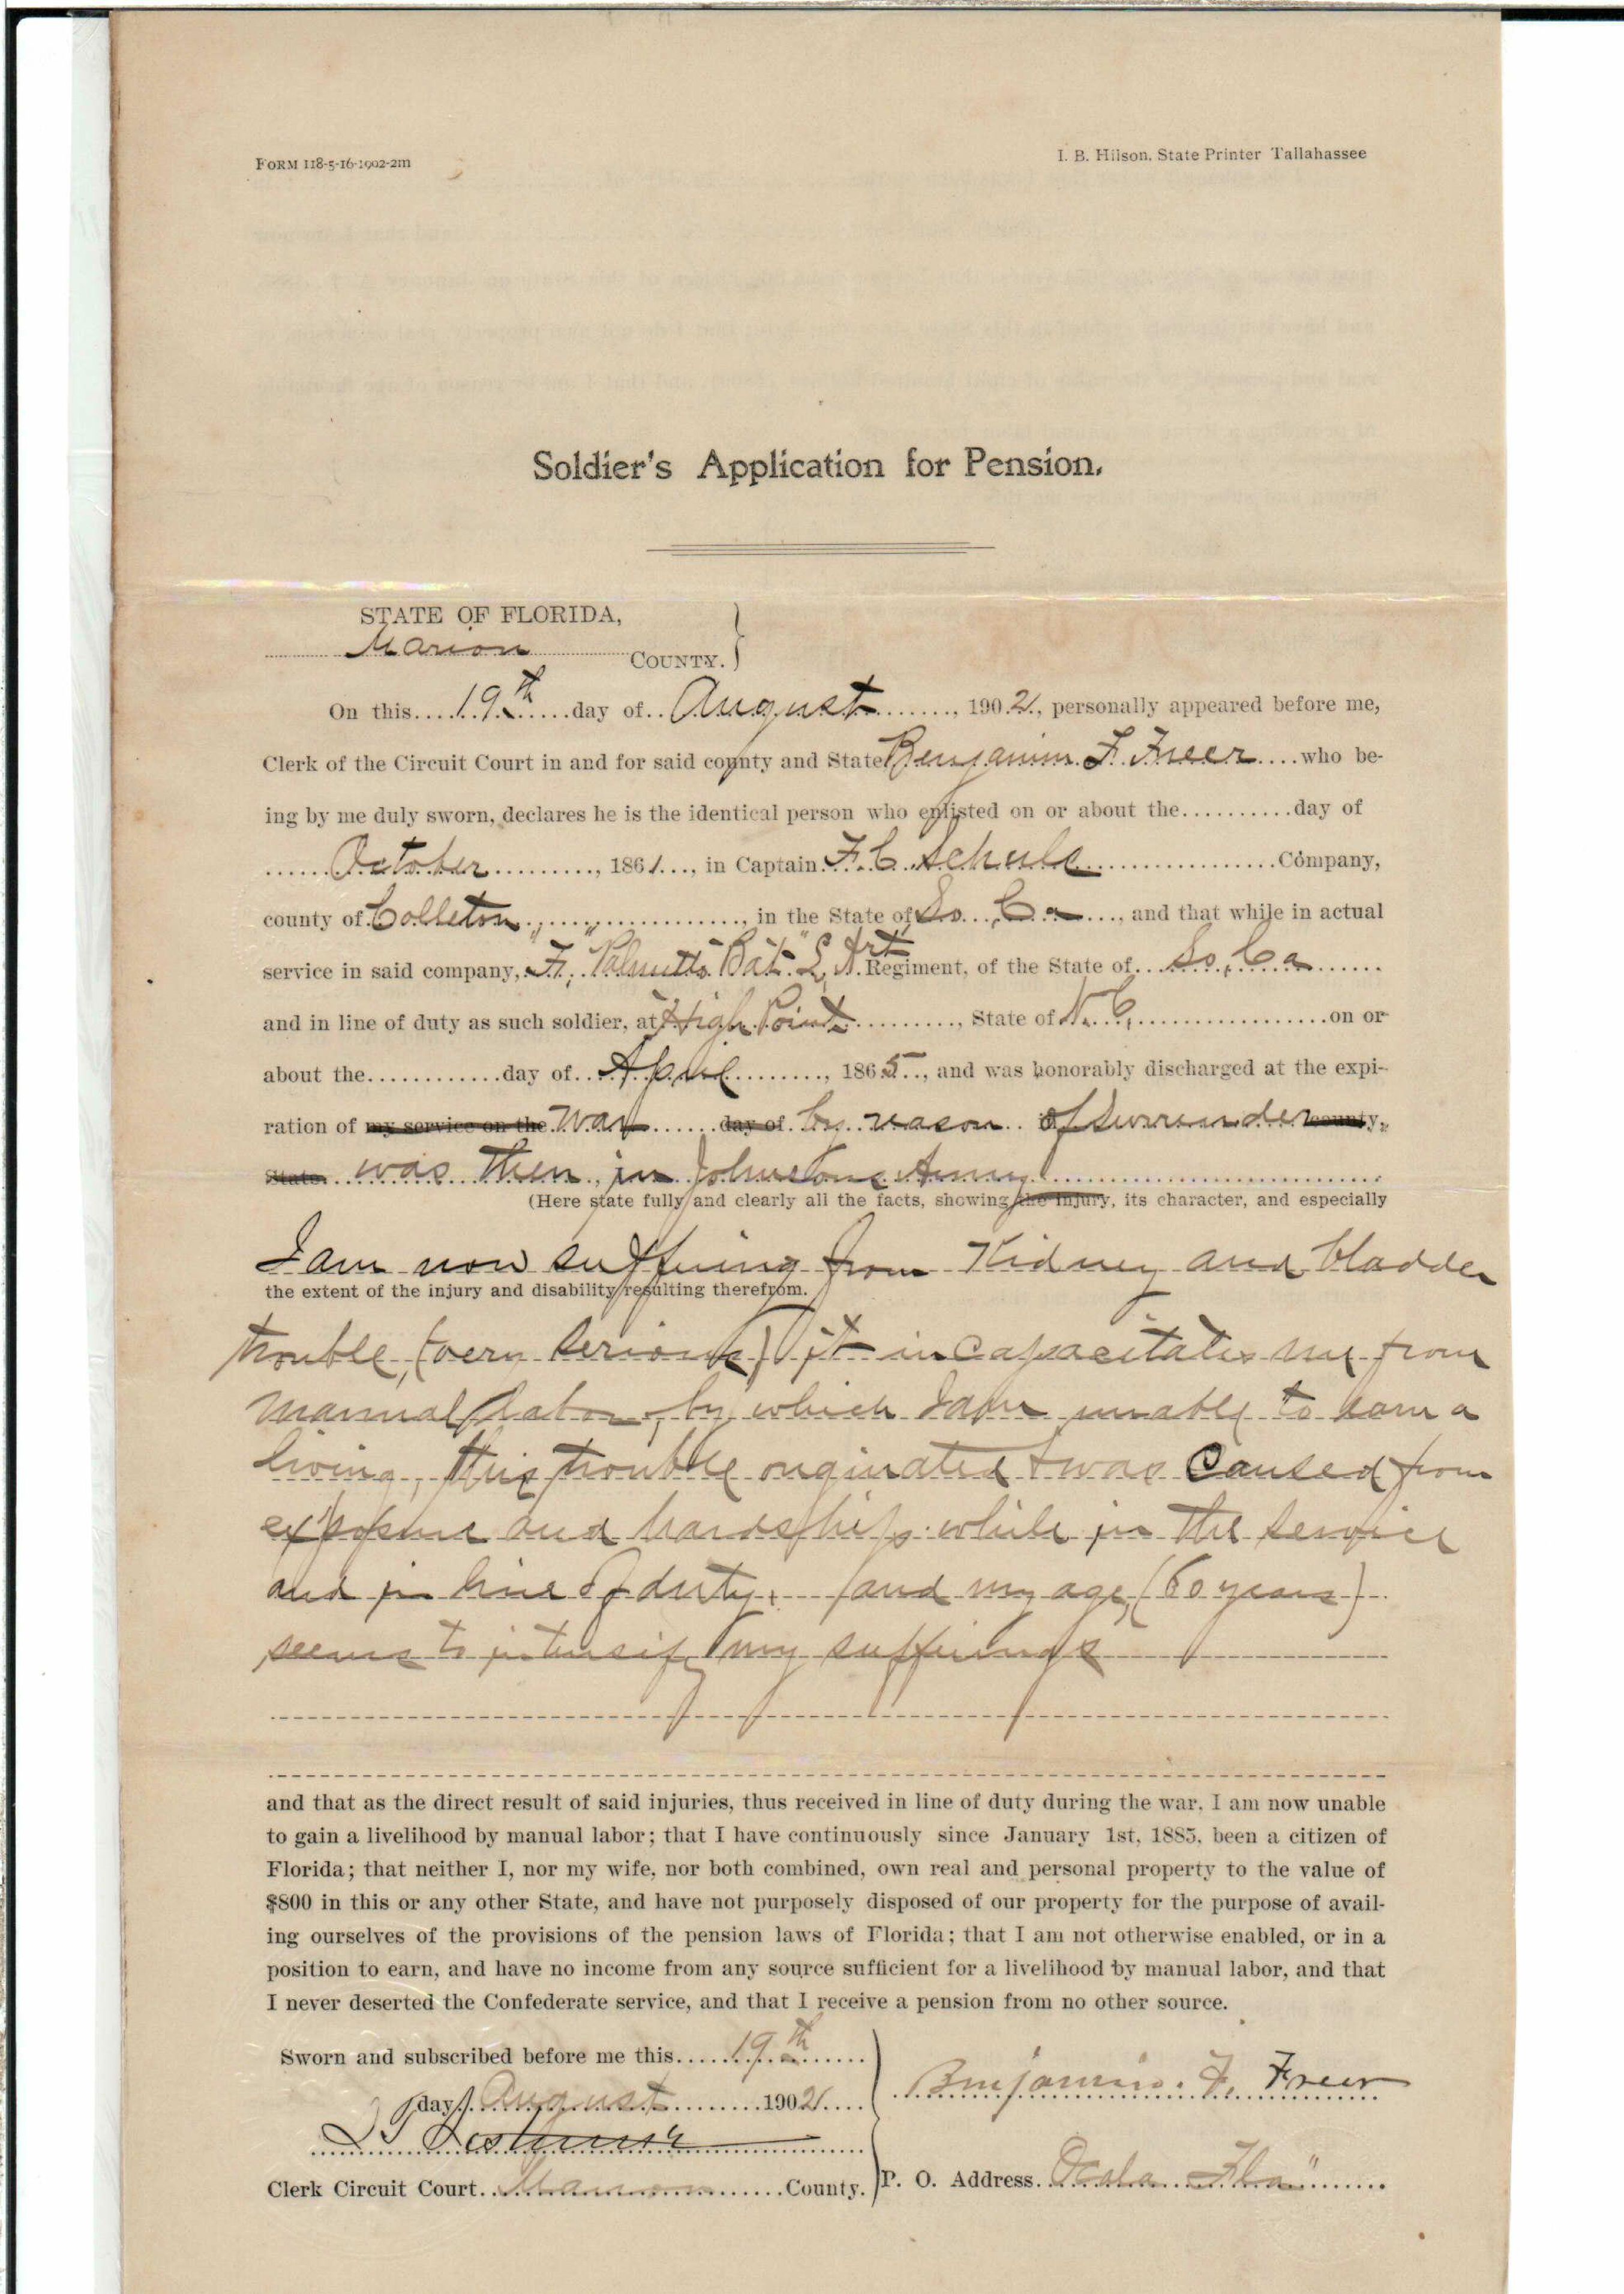 FORM 118-5-16-1902-2m
I. B. Hilson. State Printer Tallahassee
Soldier's Application for Pension.
STATE OF FLORIDA,
Marion COUNTY.
On this....19th....day of..August........, 1902., personally appeared before me,
Clerk of the Circuit Court in and for said county and State Benjamin F. Freer....who be-
ing by me duly sworn, declares he is the identical person who enlisted on or about the..........day of
......October.........., 1861..., in Captain F. C. Schulz................Company,
county of Colleton ......................, in the State of So. Ca......, and that while in actual
service in said company, F, "Palmetto Bat" L, Art Regiment, of the State of...So. Ca......
and in line of duty as such soldier, at High Point.........., State of N. C..................on or
about the............day of..April........, 1865.., and was honorably discharged at the expi-
ration of my service on the war......day of by reason of Surrender county,
State was then in Johnstons Army
(Here state fully and clearly all the facts, showing the injury, its character, and especially
I am now suffering from Kidney and bladder
the extent of the injury and disability resulting therefrom.
trouble, (very serious) it incapacitates me from
manual labor, by which I am unable to earn a
living, this trouble originated & was caused from
exposure and hardships while in the service
and in line of duty, and my age, (60 years)
seems to intensify my sufferings
and that as the direct result of said injuries, thus received in line of duty during the war, I am now unable
to gain a livelihood by manual labor; that I have continuously since January 1st, 1885, been a citizen of
Florida; that neither I, nor my wife, nor both combined, own real and personal property to the value of
$800 in this or any other State, and have not purposely disposed of our property for the purpose of avail-
ing ourselves of the provisions of the pension laws of Florida; that I am not otherwise enabled, or in a
position to earn, and have no income from any source sufficient for a livelihood by manual labor, and that
I never deserted the Confederate service, and that I receive a pension from no other source.
Sworn and subscribed before me this.....19th......
day August.........1902....
Benjamin. F. Freer
Clerk Circuit Court..Marion......County.
P. O. Address. Ocala Fla